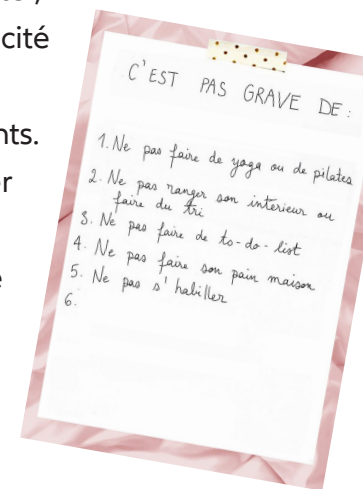 cité
nts.
er
e
C'EST PAS GRAVE DE :
1. Ne pas faire de yoga ou de pilates
2. Ne pas ranger son interieur ou
faire du tri
3. Ne pas faire de to-do-list
4. Ne pas faire son pain maison
5. Ne pas s'habiller
6.